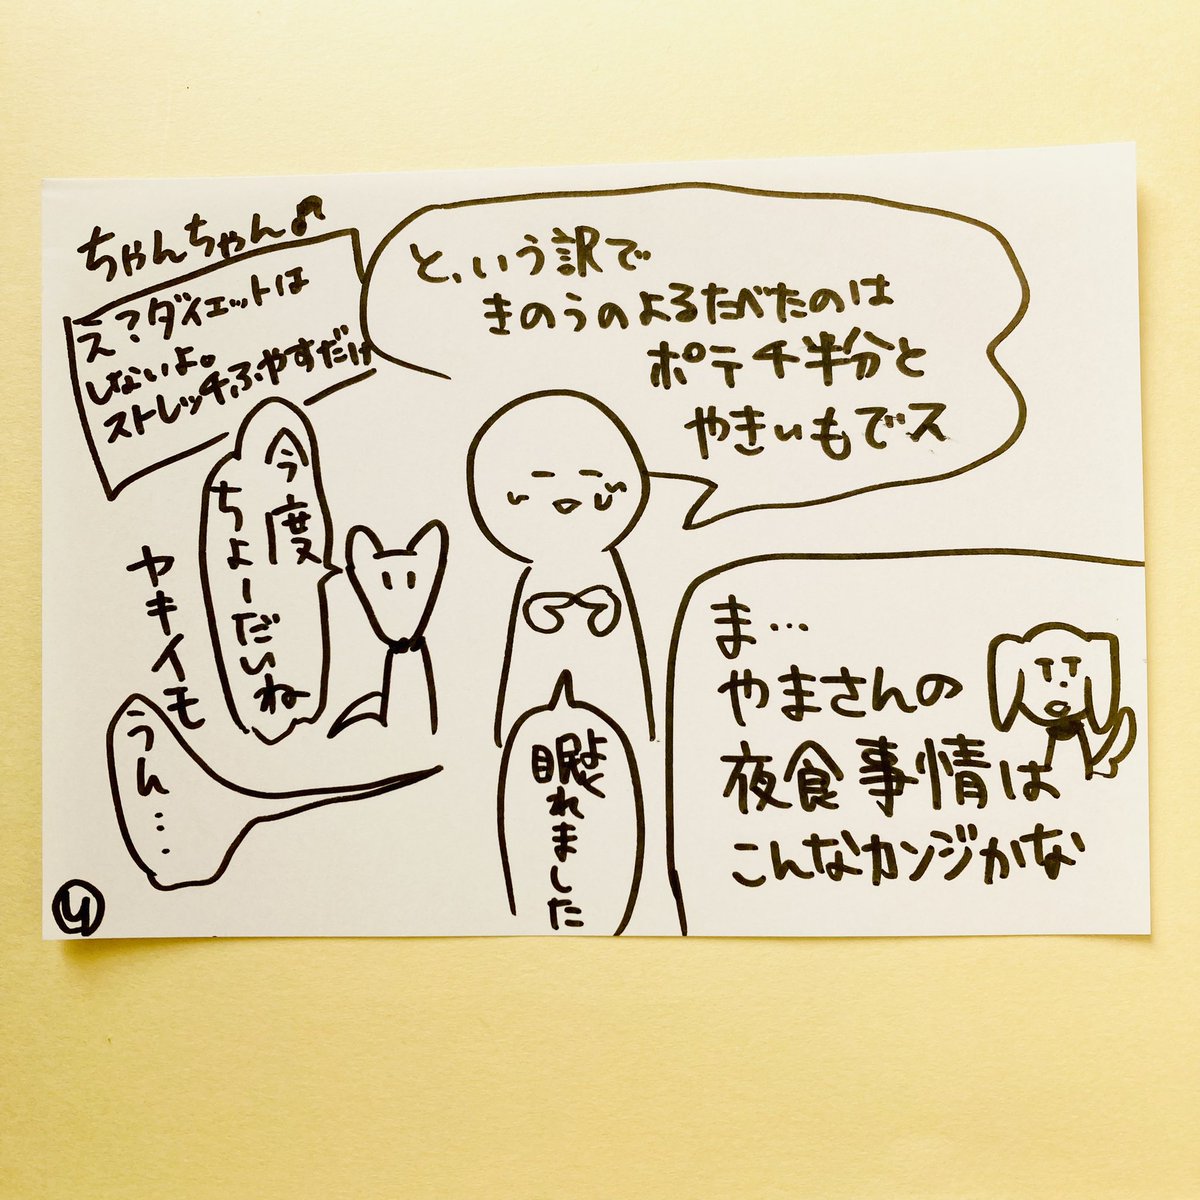 と、いう訳で
きのうのよるたべたのは
ポテチ半分と
やきいもでス
ちゃんちゃん♪
え?ダイエットは
しないよ。
ストレッチふやすだけ
今度
ちょーだいね
ヤキイモ
うん…
よく
眠れました
ま…
やまさんの
夜食事情は
こんなカンジかな